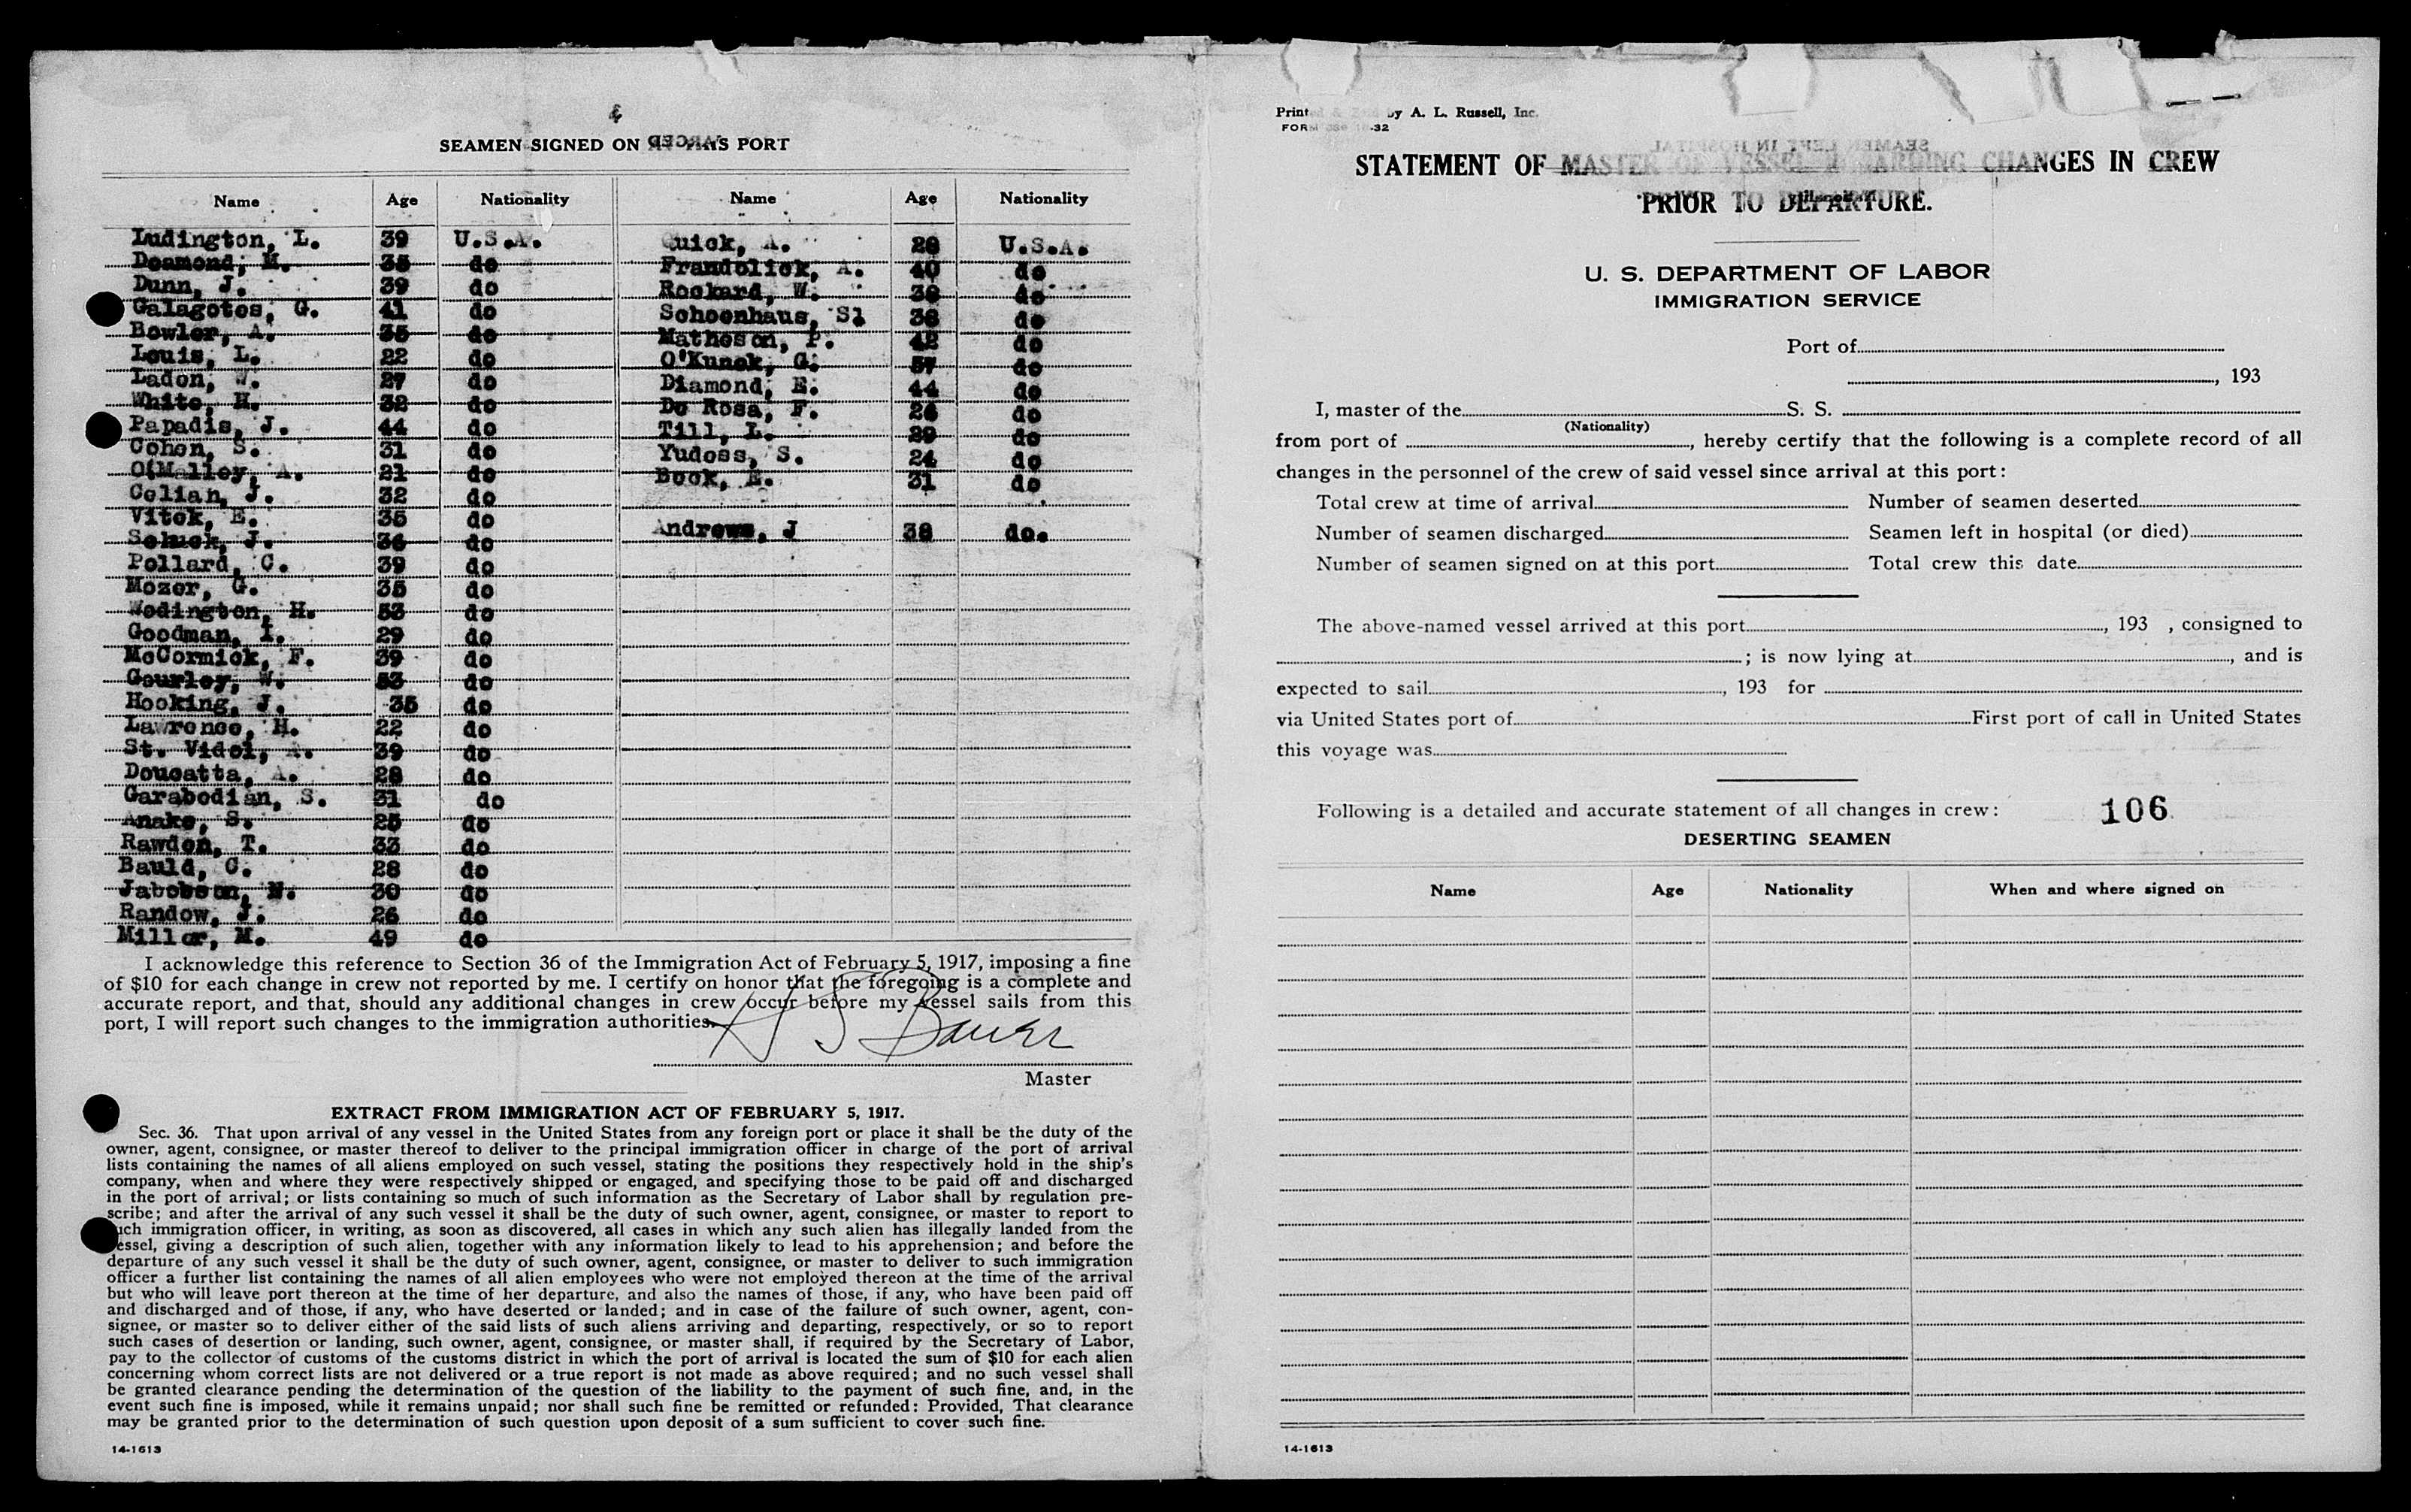 SEAMEN SIGNED ON AT THIS PORT
Name Age Nationality Name Age Nationality
Ludington, L. 39 U.S.A. Quick, A. 28 U.S.A.
Desmond, M. 35 do Frandolick, A. 40 do
Dunn, J. 39 do Rockard, W. 38 do
Galagotos, G. 41 do Schoenhaus, S1 38 do
Bowler, A. 35 do Matheson, P. 42 do
Louis, L. 22 do O'Kunek, G. 57 do
Ladon, W. 27 do Diamond, E. 44 do
White, H. 32 do De Rosa, F. 26 do
Papadis, J. 44 do Till, L. 29 do
Cohen, S. 31 do Yudoss, S. 24 do
O'Malley, A. 21 do Book, E. 31 do
Celian, J. 32 do
Vitek, E. 35 do Andrews, J 38 do.
Schuck, J. 36 do
Pollard, C. 39 do
Mozer, G. 35 do
Wedington, H. 53 do
Goodman, I. 29 do
McCormick, F. 39 do
Gourley, W. 53 do
Hocking, J. 35 do
Lawrence, H. 22 do
St. Videl, A. 39 do
Doucatta, A. 28 do
Garabedian, S. 31 do
Anake, S. 25 do
Rawden, T. 33 do
Bauld, C. 28 do
Jabobson, N. 30 do
Randow, J. 26 do
Miller, M. 49 do
I acknowledge this reference to Section 36 of the Immigration Act of February 5, 1917, imposing a fine
of $10 for each change in crew not reported by me. I certify on honor that the foregoing is a complete and
accurate report, and that, should any additional changes in crew occur before my vessel sails from this
port, I will report such changes to the immigration authorities.
Master
EXTRACT FROM IMMIGRATION ACT OF FEBRUARY 5, 1917.
Sec. 36. That upon arrival of any vessel in the United States from any foreign port or place it shall be the duty of the
owner, agent, consignee, or master thereof to deliver to the principal immigration officer in charge of the port of arrival
lists containing the names of all aliens employed on such vessel, stating the positions they respectively hold in the ship's
company, when and where they were respectively shipped or engaged, and specifying those to be paid off and discharged
in the port of arrival; or lists containing so much of such information as the Secretary of Labor shall by regulation pre-
scribe; and after the arrival of any such vessel it shall be the duty of such owner, agent, consignee, or master to report to
such immigration officer, in writing, as soon as discovered, all cases in which any such alien has illegally landed from the
vessel, giving a description of such alien, together with any information likely to lead to his apprehension; and before the
departure of any such vessel it shall be the duty of such owner, agent, consignee, or master to deliver to such immigration
officer a further list containing the names of all alien employees who were not employed thereon at the time of the arrival
but who will leave port thereon at the time of her departure, and also the names of those, if any, who have been paid off
and discharged and of those, if any, who have deserted or landed; and in case of the failure of such owner, agent, con-
signee, or master so to deliver either of the said lists of such aliens arriving and departing, respectively, or so to report
such cases of desertion or landing, such owner, agent, consignee, or master shall, if required by the Secretary of Labor,
pay to the collector of customs of the customs district in which the port of arrival is located the sum of $10 for each alien
concerning whom correct lists are not delivered or a true report is not made as above required; and no such vessel shall
be granted clearance pending the determination of the question of the liability to the payment of such fine, and, in the
event such fine is imposed, while it remains unpaid; nor shall such fine be remitted or refunded: Provided, That clearance
may be granted prior to the determination of such question upon deposit of a sum sufficient to cover such fine.
14-1613
by A. L. Russell, Inc.
STATEMENT OF MASTER OF VESSEL REGARDING CHANGES IN CREW
PRIOR TO DEPARTURE.
U. S. DEPARTMENT OF LABOR
IMMIGRATION SERVICE
Port of
, 193
I, master of the S. S.
(Nationality)
from port of , hereby certify that the following is a complete record of all
changes in the personnel of the crew of said vessel since arrival at this port:
Total crew at time of arrival Number of seamen deserted
Number of seamen discharged Seamen left in hospital (or died)
Number of seamen signed on at this port Total crew this date
The above-named vessel arrived at this port , 193 , consigned to
; is now lying at , and is
expected to sail , 193 for
via United States port of First port of call in United States
this voyage was
Following is a detailed and accurate statement of all changes in crew: 106
DESERTING SEAMEN
Name Age Nationality When and where signed on
14-1613